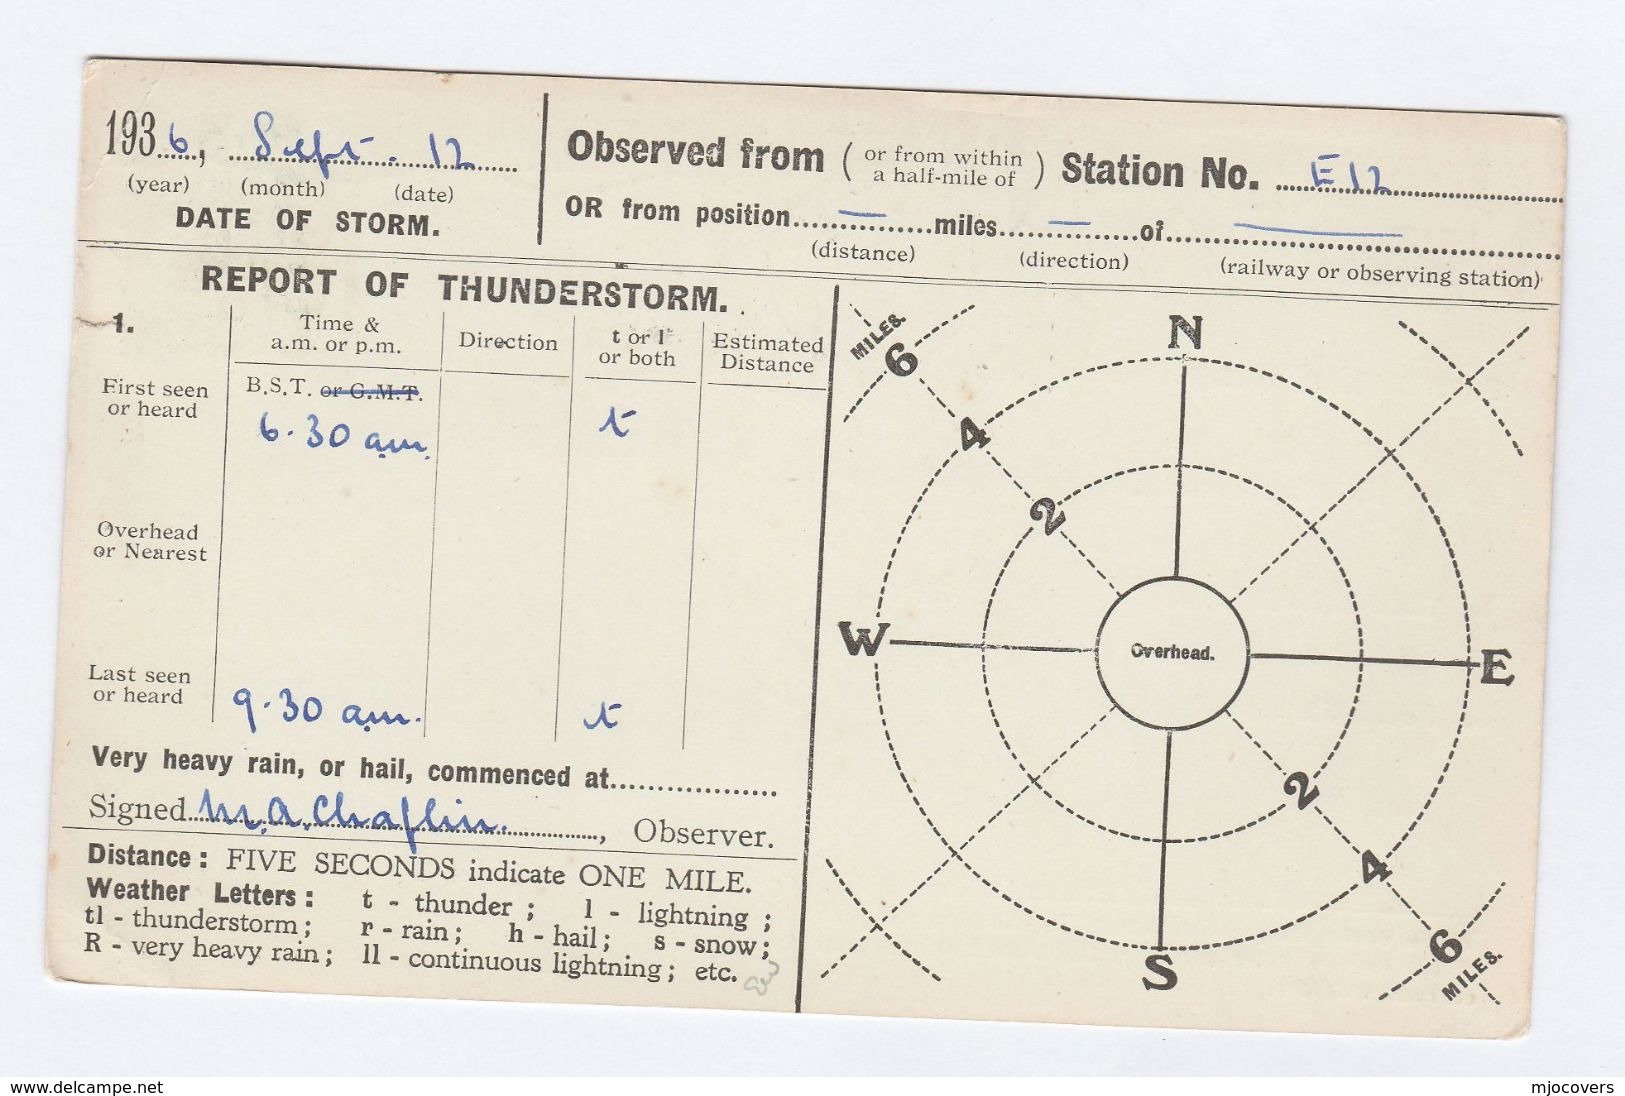 1936, Sept. 12
(year) (month) (date)
DATE OF STORM.
Observed from ( or from within a half-mile of ) Station No. E12
OR from position..... — .....miles..... — .....of..... —
(distance) (direction) (railway or observing station)
REPORT OF THUNDERSTORM.
1. Time & a.m. or p.m. Direction t or l or both Estimated Distance
First seen or heard
B.S.T. or G.M.T.
6.30 am. t
Overhead or Nearest
Last seen or heard
9.30 am. t
Very heavy rain, or hail, commenced at
Signed M.A. Chaplin., Observer.
Distance: FIVE SECONDS indicate ONE MILE.
Weather Letters: t - thunder; l - lightning;
tl - thunderstorm; r - rain; h - hail; s - snow;
R - very heavy rain; ll - continuous lightning; etc.
MILES.
6
4
2
N
W
Overhead.
E
S
2
4
6
MILES.
www.delcampe.net
mjocovers